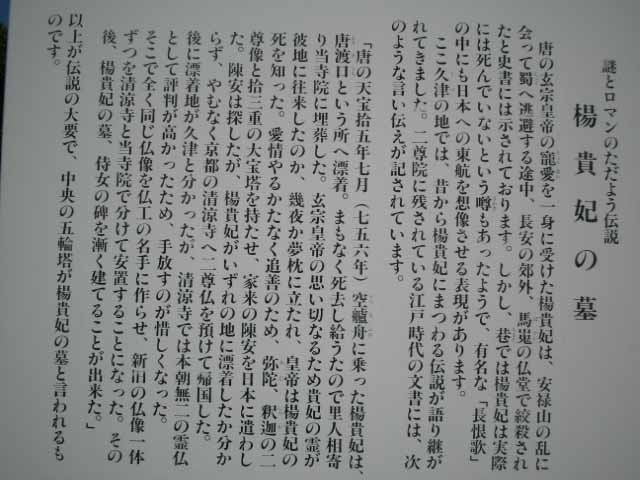 謎とロマンのただよう伝説
楊貴妃の墓
唐の玄宗皇帝の寵愛を一身に受けた楊貴妃は、安禄山の乱に
会って蜀へ逃避する途中、長安の郊外、馬嵬の仏堂で絞殺され
たと史書には示されております。しかし、巷では楊貴妃は実際
には死んでいないという噂もあったようで、有名な「長恨歌」
の中にも日本への東航を想像させる表現があります。
ここ久津の地では、昔から楊貴妃にまつわる伝説が語り継が
れてきました。二尊院に残されている江戸時代の文書には、次
のような言い伝えが記されています。
「唐の天宝拾五年七月(七五六年)空艫舟に乗った楊貴妃は、
唐渡口という所へ漂着。まもなく死去し給うたので里人相寄
り当寺院に埋葬した。玄宗皇帝の思い切なるため貴妃の霊が
彼地に往来したのか、幾夜か夢枕に立たれ、皇帝は楊貴妃の
死を知った。愛情やるかたなく追善のため、弥陀、釈迦の二
尊像と拾三重の大宝塔を持たせ、家来の陳安を日本に遣わし
た。陳安は探したが、楊貴妃がいずれの地に漂着したか分か
らず、やむなく京都の清涼寺へ二尊仏を預けて帰国した。
後に漂着地が久津と分かったが、清涼寺では本朝無二の霊仏
として評判が高かったため、手放すのが惜しくなった。
そこで全く同じ仏像を仏工の名手に作らせ、新旧の仏像一体
ずつを清涼寺と当寺院で分けて安置することになった。その
後、楊貴妃の墓、侍女の碑を漸く建てることが出来た。」
以上が伝説の大要で、中央の五輪塔が楊貴妃の墓と言われるも
のです。